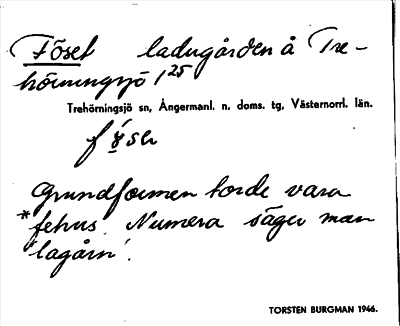 Föset ladugården å Tre-
hörningsjö 1²⁵
Trehörningsjö sn, Ångermanl. n. doms. tg, Västernorrl. län.
Grundformen torde vara
*fehus. Numera säger man
'lagårn'.
TORSTEN BURGMAN 1946.